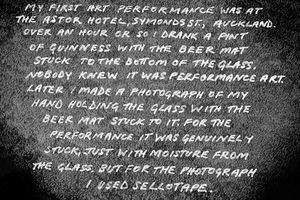 MY FIRST ART PERFORMANCE WAS AT
THE ASTOR HOTEL, SYMONDS ST., AUCKLAND.
OVER AN HOUR OR SO I DRANK A PINT
OF GUINNESS WITH THE BEER MAT
STUCK TO THE BOTTOM OF THE GLASS,
NOBODY KNEW IT WAS PERFORMANCE ART.
LATER I MADE A PHOTOGRAPH OF MY
HAND HOLDING THE GLASS WITH THE
BEER MAT STUCK TO IT. FOR THE
PERFORMANCE IT WAS GENUINELY
STUCK, JUST WITH MOISTURE FROM
THE GLASS, BUT FOR THE PHOTOGRAPH
I USED SELLOTAPE.